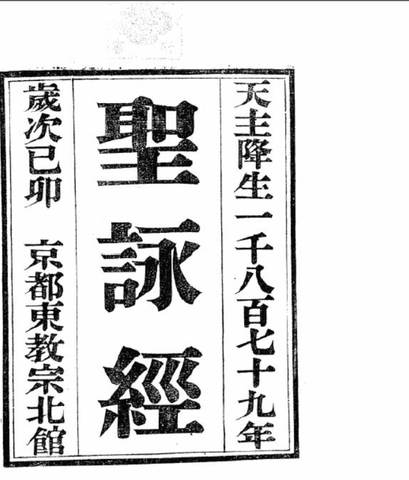 天主降生一千八百七十九年
聖詠經
歲次已卯 京都東教宗北館